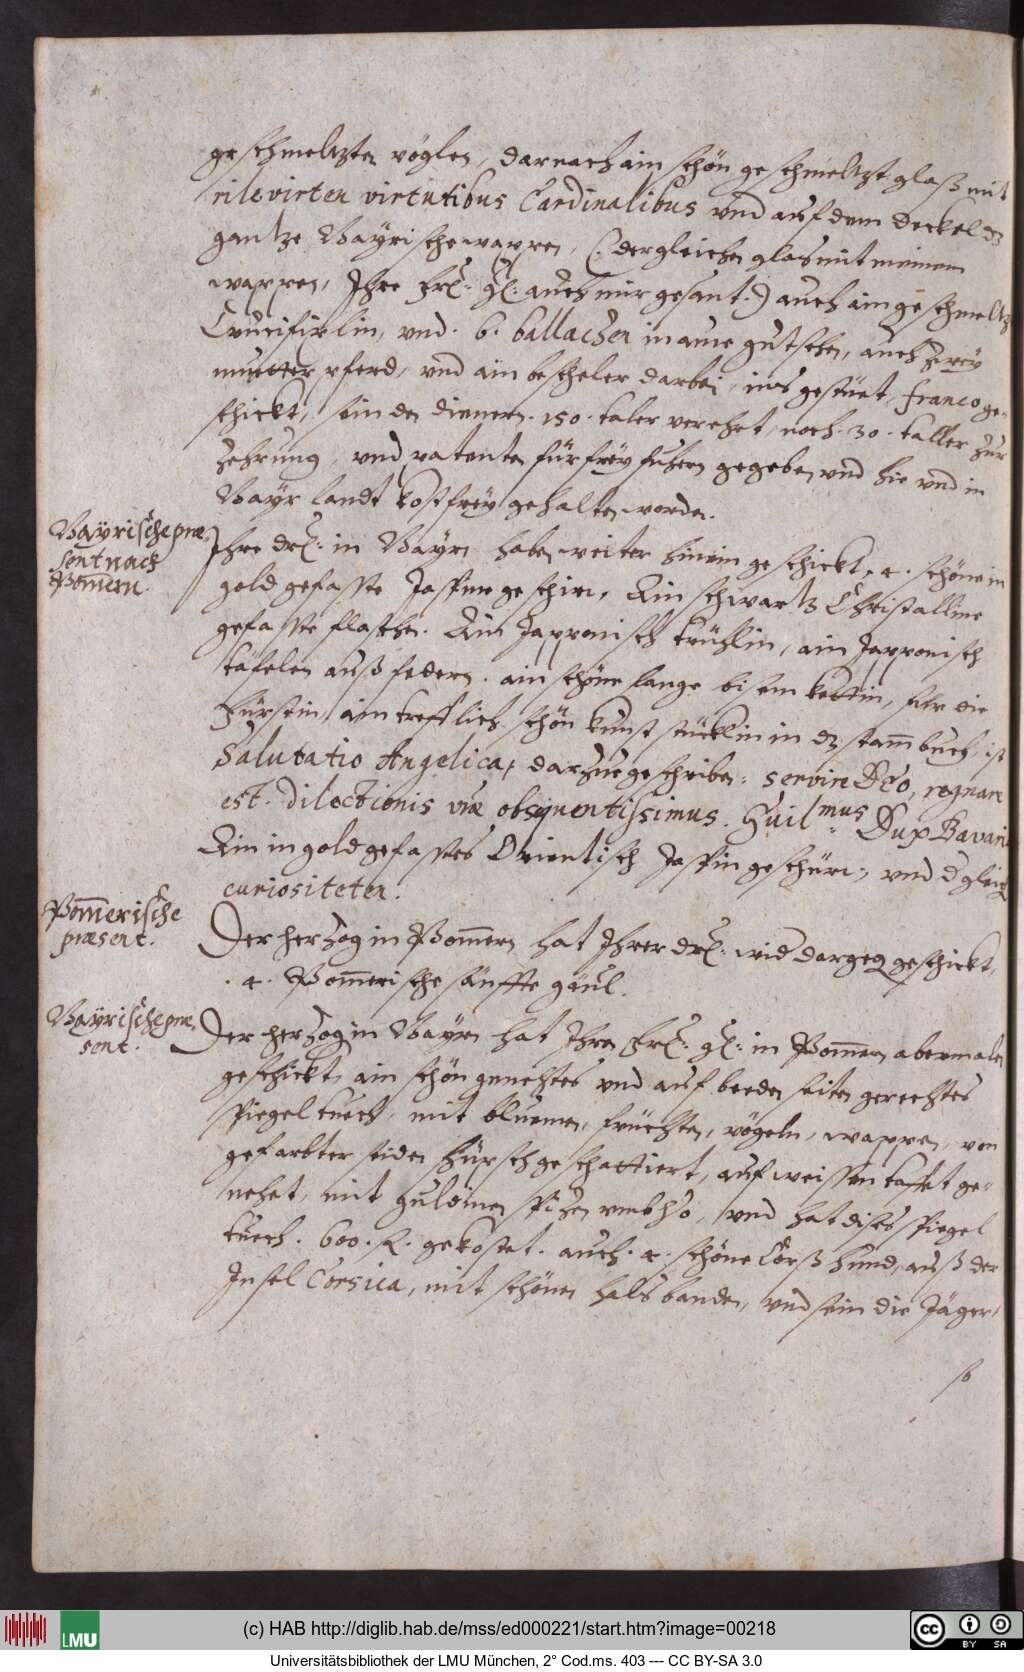 geschmeltzten vöglen, darnach ain schön geschmeltzt glaß mit
rilevirten virtutibus Cardinalibus vnd auf dem deckel dz
gantze Bayrische wappen, (: dergleichen glas mit meinem
wappen, Ihre Frl: Gl: auch mir gesant:) auch ain geschmeltzt
Crucifixlin, vnd .6. ballachen in aine gutschen, auch zwey
muetter pferd, vnd ain bescheler darbei, ins gestüet, franco ge-
schickt, sein den dienern .150. taler verehrt, noch .30. taller zur
zehrung, vnd patenta für frey fuhern gegeben vnd hie vnd in
Bayrlandt kostfrey gehalten worden.
Bayrische præ-
sent nach
Pomern.
Ihre drl: in Bayrn haben weiter hinein geschickt .4. schöne in
gold gefasste Jaspine geschirr, Ain schwartz Christalline
gefasste flaschen. Ain Japponisch trühlin, ain Japponisch
täfelen auß federn. ain schöne lange bisem kettin, für die
Fürstin, ain trefflich schön kunst stücklin in dz stam̄buch ist
Salutatio Angelica, darzue geschriben: servire Deo, regnare
est. Dilectionis vræ obsequentissimus. Guilmus Dux Bavariæ
Ain in gold gefasstes Orientisch Jaspin geschürr, vnd dgleichen
curiositeten.
Pom̄erische
præsent.
Der herzog in Pom̄ern hat Ihrer drl: wid dargegen geschickt,
.4. Pom̄erische sänffte gäul.
Bayrische præ-
sent.
Der herzog in Bayrn hat Ihren Frl: gl: in Pom̄ern abermalen
geschickt, ain schön genehtes vnd auf beeden seiten gerechtes
Spiegel tuech, mit bluemen, früchten, vögeln, wappen, von
gefarbter seiden hüpsch geschattiert, auf weissen taffet ge-
nehet, mit guldinen spizen vmb , vnd hat dises spiegel
tuech .600. fl. gekostet. auch .4. schöne Corß hund, auß der
Insel Corsica, mit schönen hals banden, vnd sein die Jäger,
so
(c) HAB http://diglib.hab.de/mss/ed000221/start.htm?image=00218
LMU
Universitätsbibliothek der LMU München, 2° Cod.ms. 403 --- CC BY-SA 3.0
cc BY SA